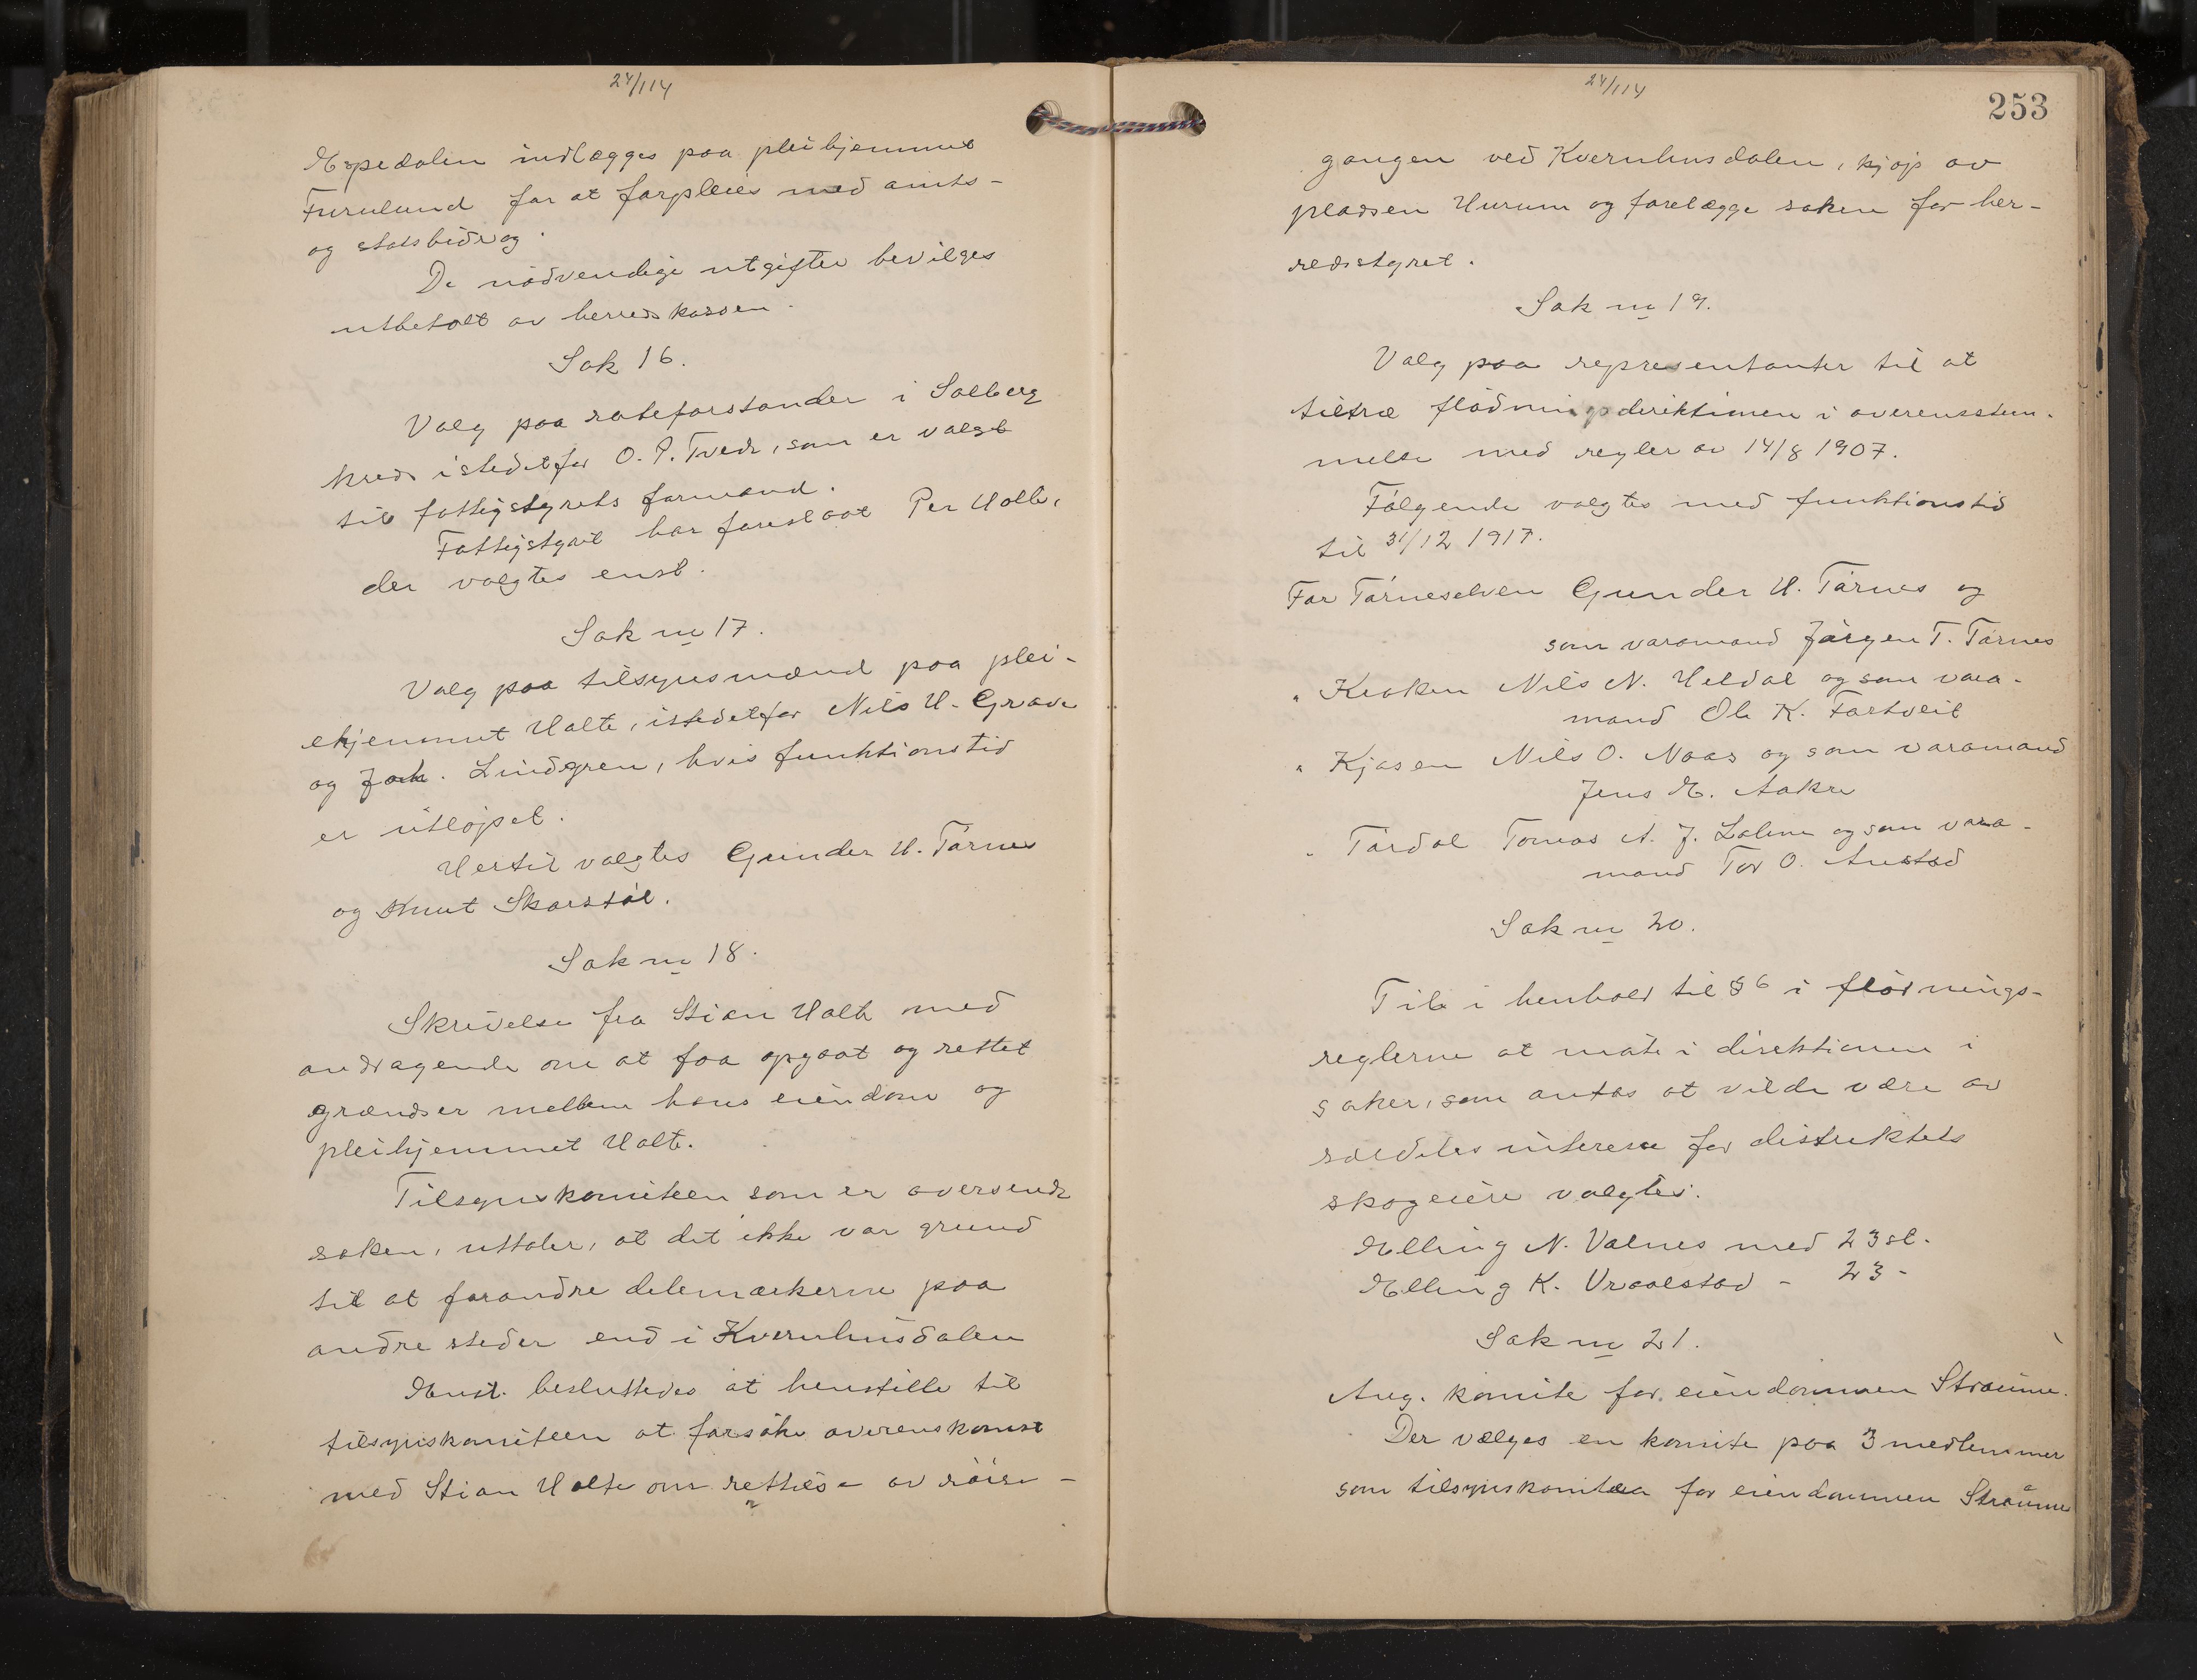 24/114
Espedalen indlægges paa pleihjemmet
Furulund for at forpleies med amts-
og statsbidrag.
De nødvendige utgifter bevilges
utbetalt av herredskassen.
Sak 16.
Valg paa roteforstander i Solberg
kreds istedetfor O. P. Tveds, som er valgt
til fattigstyrets formand.
Fattigstyret har foreslaat Per Holte,
der valgtes enst.
Sak nr 17.
Valg paa tilsynsmænd paa plei-
ehjemmet Holte, istedetfor Nils H. Grave
og Joh. Lindgren, hvis funktionstid
er utløpet.
Hertil valgtes Gunder H. Tørnes
og Knut Skarstøl.
Sak nr 18.
Skrivelse fra Stian Holte med
andragende om at faa opgaat og rettet
grændser mellem hans eiendom og
pleihjemmet Holte.
Tilsynskomiteen som er oversendt
saken, uttaler, at det ikke var grund
til at forandre delemærkerne paa
andre steder end i Kvernhusdalen
Enst. besluttedes at henstille til
tilsynskomiteen at forsøke overenskomst
med Stian Holte om rettelse av
24/114
253
gangen ved Kvernhusdalen, kjøp av
pladsen Hurum og forelægge saken for her-
redsstyret.
Sak nr 19.
Valg paa representanter til at
tiltræ flødningsdirektionen i overensstem-
melse med regler av 14/8 1907.
Følgende valgtes med funktionstid
til 31/12 1917.
For Tørneselven Gunder H. Tørnes og
som varamand Jørgen T. Tørnes
" Kroken Nils N. Heldal og som vara-
mand Ole K. Fartveit
" Kjøsen Nils O. Naas og som varamand
Jens E. Aakre
" Tørdal Tomas A. J. Lolim og som vara-
mand Tor O. Austad
Sak nr 20.
Til i henhold til § 6 i flødnings-
reglerne at møte i direktionen i
saker, som antas at vilde være av
særdeles interesse for distriktets
skogeiere valgtes:
Elling N. Valnes med 23 st.
Elling K. Vraalstad - 23 -
Sak nr 21.
Ang. komite for eiendommen Strømme.
Der vælges en komite paa 3 medlemmer
som tilsynskomitea for eiendommen Strømme